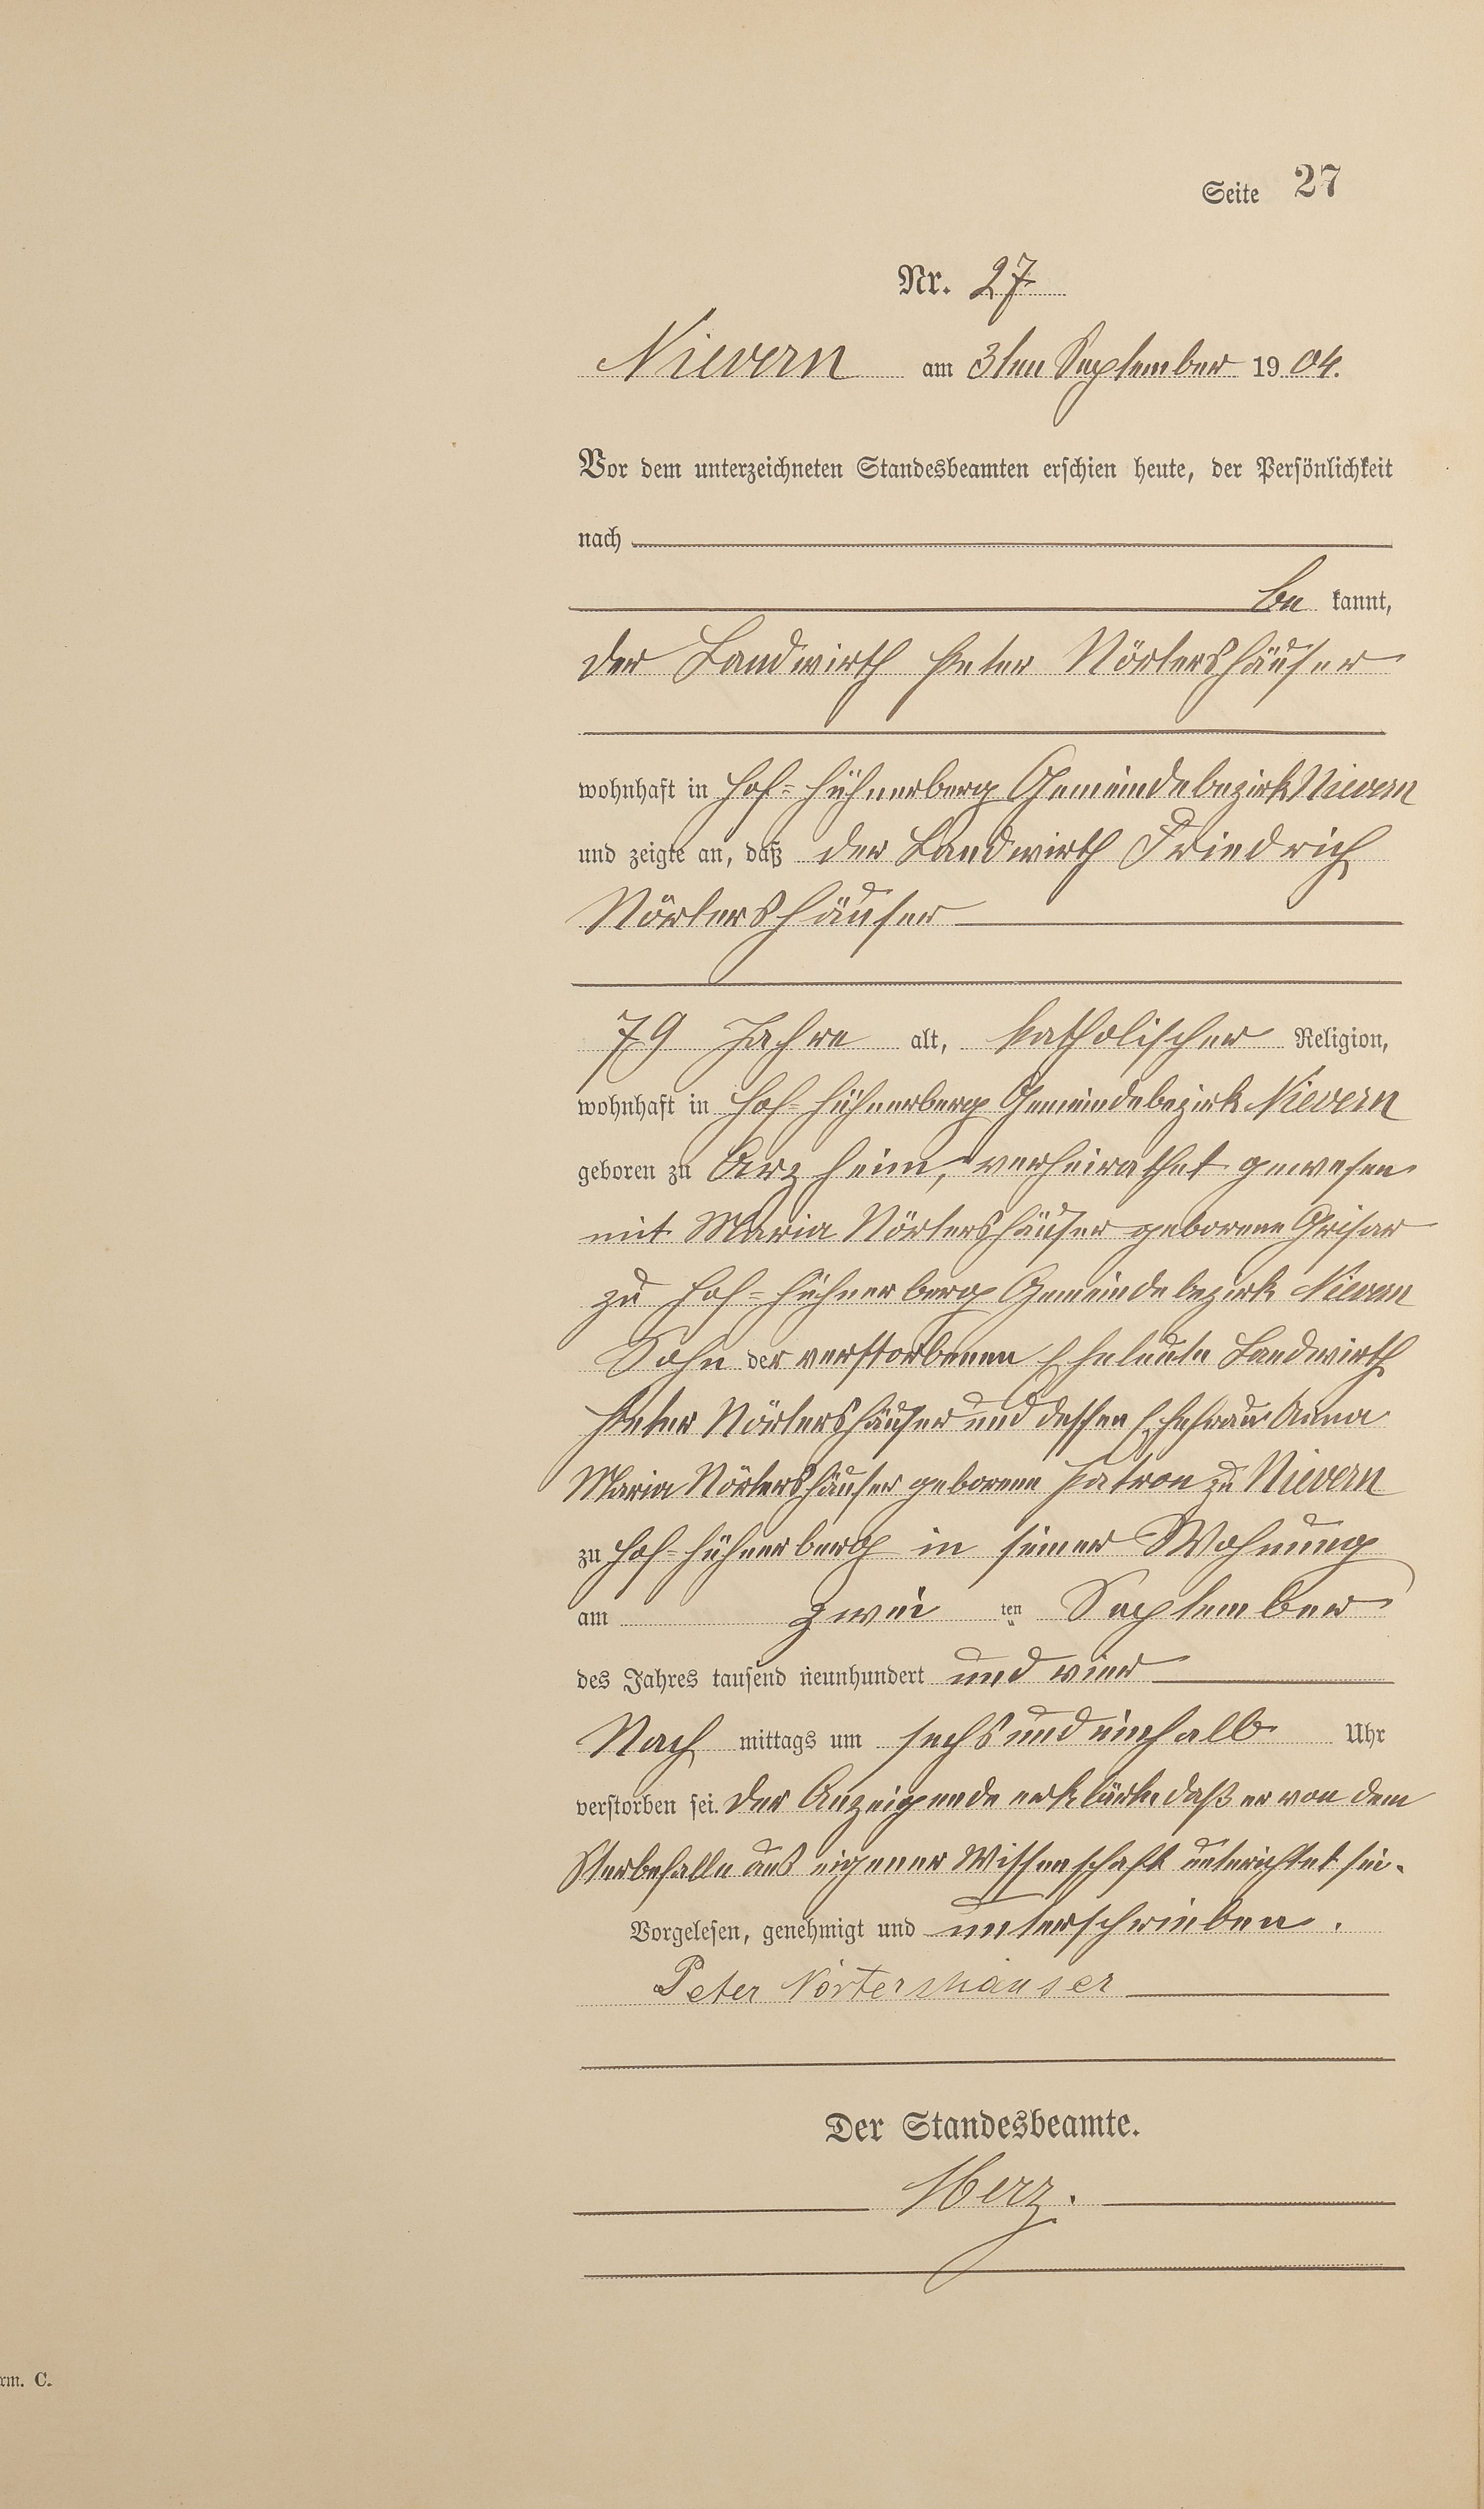 Seite 27
Nr. 27
Nievern am 3ten September 1904.
Vor dem unterzeichneten Standesbeamten erschien heute, der Persönlichkeit
nach
be kannt,
der Landwirth Peter Nörtershäuser
wohnhaft in Hof-Hühnerberg Gemeindebezirk Nievern
und zeigte an, daß der Landwirth Friedrich
Nörtershäuser
79 Jahre alt, katholischer Religion,
wohnhaft in Hof-Hühnerberg Gemeindebezirk Nievern
geboren zu Arzheim, verheirathet gewesen
mit Maria Nörtershäuser geborene Grisar
zu Hof-Hühnerberg Gemeindebezirk Nievern
Sohn der verstorbenen Eheleute Landwirth
Peter Nörtershäuser und dessen Ehefrau Anna
Maria Nörtershäuser geborene Patron zu Nievern
zu Hof-Hühnerberg in seiner Wohnung
am zwei ten September
des Jahres tausend neunhundert und vier
Nach mittags um sechs und einhalb Uhr
verstorben sei. Der Anzeigende erklärte, daß er von dem
Sterbefalle aus eigener Wissenschaft unterichtet sei.
Vorgelesen, genehmigt und unterschrieben.
Peter Nörtershäuser
Der Standesbeamte.
Herz.
rm. C.